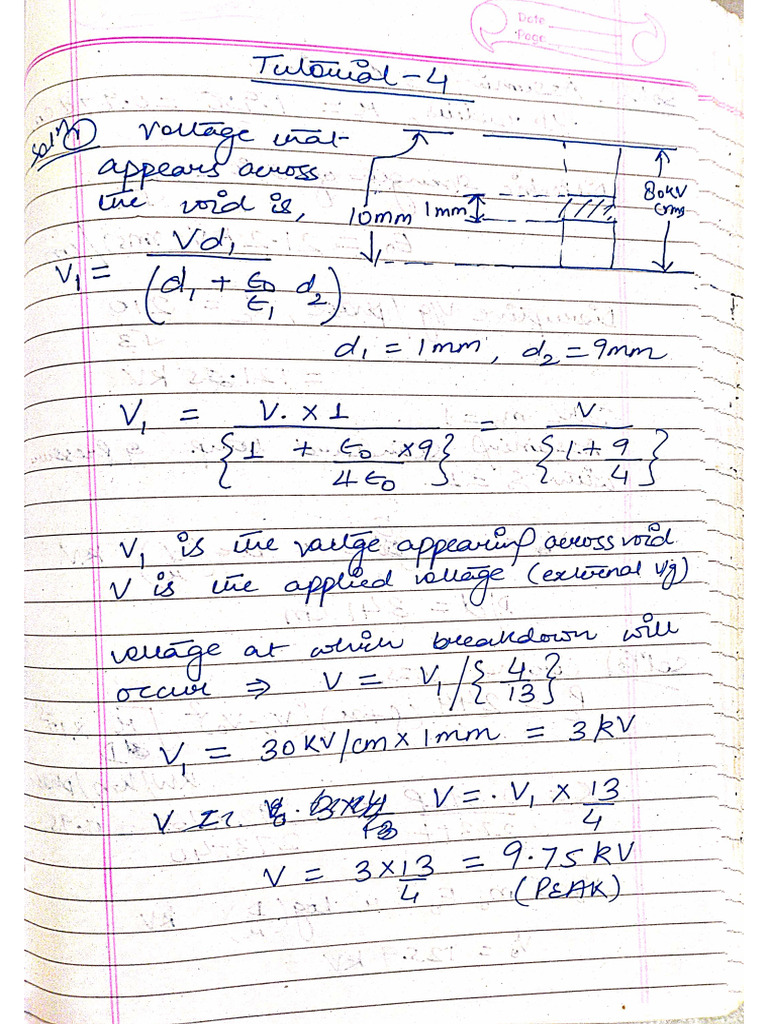 Date
Page
Tutorial-4
Sol:
Voltage that
appears across
the void is,
10mm
1mm
80KV
(rms)
V₁ = Vd₁ / (d₁ + ϵ₀/ϵ₁ d₂)
d₁ = 1mm, d₂ = 9mm
V₁ = V. × 1 / {1 + ϵ₀/4ϵ₀ × 9} = V / {1 + 9/4}
V₁ is the valtge appearing across void
V is the applied voltage (external v/g)
voltage at which breakdown will
occur ⇒ V = V₁/{4/13}
V₁ = 30KV/cm × 1mm = 3 kV
V = V₁ × 13/4
V = 3 × 13/4 = 9.75 kV
(PEAK)